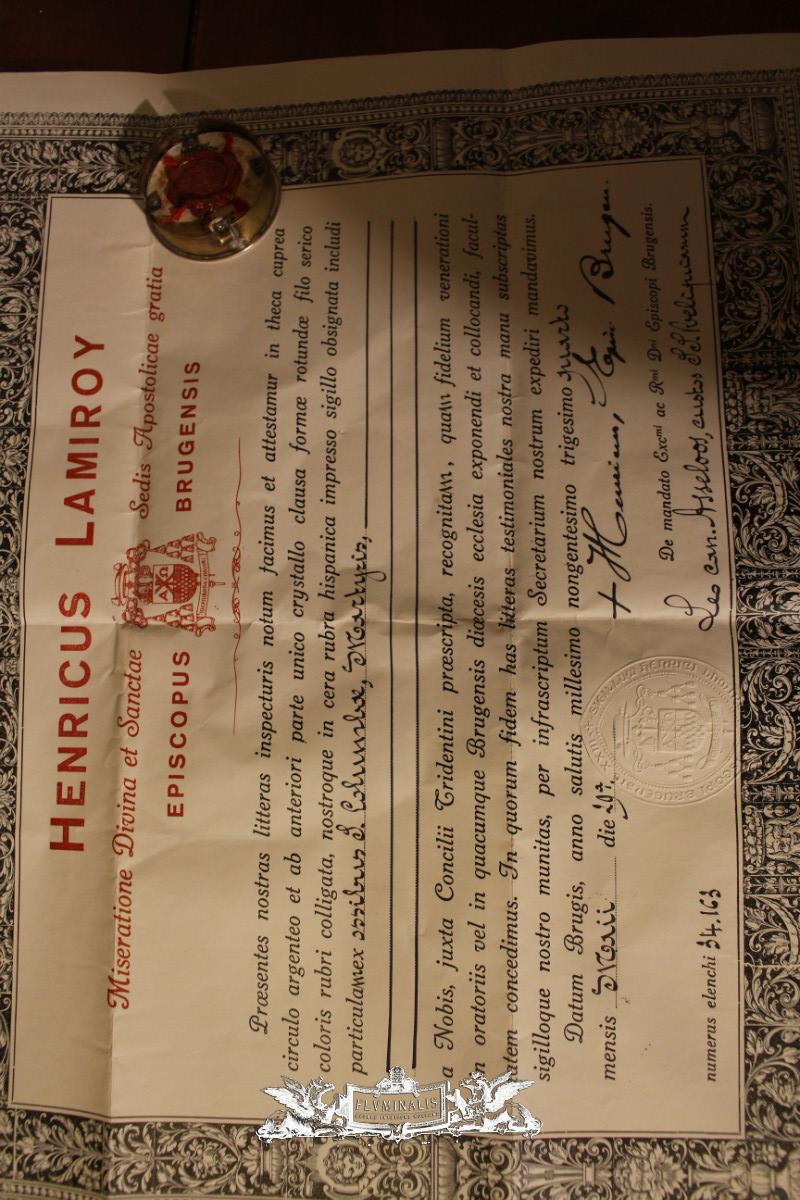 HENRICUS LAMIROY
Miseratione Divina et Sanctae Sedis Apostolicae gratia
EPISCOPUS BRUGENSIS
Præsentes nostras litteras inspecturis notum facimus et attestamur in theca cuprea
circulo argenteo et ab anteriori parte unico crystallo clausa formæ rotundæ filo serico
coloris rubri colligata, nostroque in cera rubra hispanica impresso sigillo obsignata includi
particulam ex ossibus S. Columbæ, Martyris,
a Nobis, juxta Concilii Tridentini præscripta, recognitam, quam fidelium venerationi
in oratoriis vel in quacumque Brugensis diœcesis ecclesia exponendi et collocandi, facul-
tatem concedimus. In quorum fidem has litteras testimoniales nostra manu subscriptas
sigilloque nostro munitas, per infrascriptum Secretarium nostrum expediri mandavimus.
Datum Brugis, anno salutis millesimo nongentesimo trigesimo
mensis Maii die
+ Henricus, Epis. Brugen.
De mandato Exc̅mi ac Rmi Dni Episcopi Brugensis.
Leo can. custos SS. Reliquiarum
numerus elenchi 34.163
FLVMINALIS